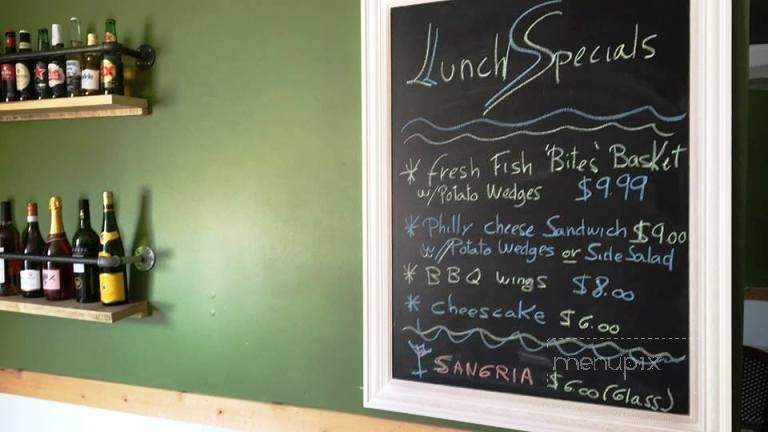 Lunch Specials
* fresh Fish 'Bites' Basket
w/Potato Wedges $9.99
* Philly cheese Sandwich $9.00
w/Potato Wedges or Side Salad
* BBQ wings $8.00
* cheescake $6.00
menupix
SANGRIA $6.00 (Glass)